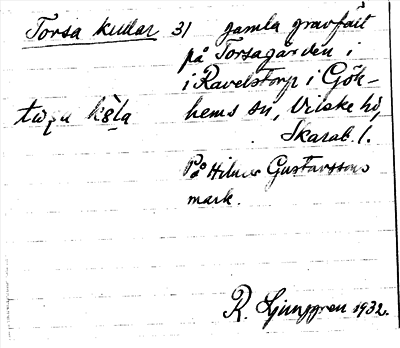 Torsa kullar 31 gamla gravfält
på Torsagården i
i Ravelstorp i Gök-
hems sn, Vilske hd,
Skarab. l.
På Hilmer Gustavssons
mark.
R. Ljunggren 1932.